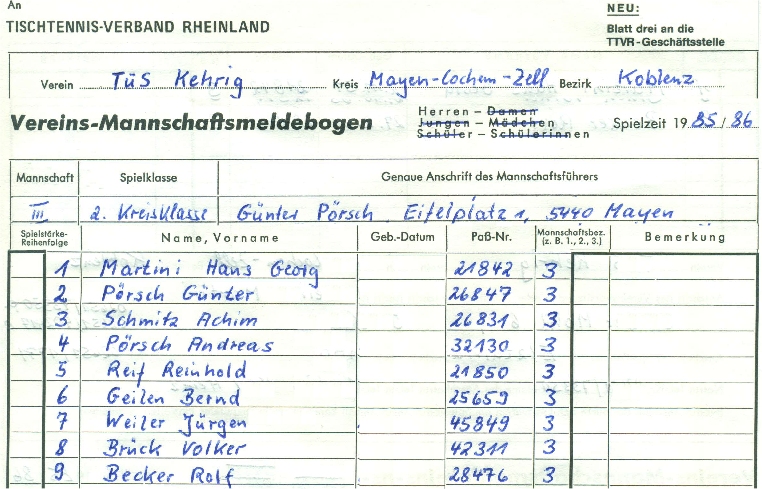 An
TISCHTENNIS-VERBAND RHEINLAND
NEU:
Blatt drei an die
TTVR-Geschäftsstelle
Verein TuS Kehrig Kreis Mayen-Cochem-Zell Bezirk Koblenz
Vereins-Mannschaftsmeldebogen
Herren – Damen
Jungen – Mädchen
Schüler – Schülerinnen
Spielzeit 1985/86
Mannschaft Spielklasse Genaue Anschrift des Mannschaftsführers
III 2. Kreisklasse Günter Pörsch, Eifelplatz 1, 5440 Mayen
Spielstärke-Reihenfolge Name, Vorname Geb.-Datum Paß-Nr. Mannschaftsbez. (z. B. 1., 2., 3.) Bemerkung
1 Martini Hans Georg 21842 3
2 Pörsch Günter 26847 3
3 Schmitz Achim 26831 3
4 Pörsch Andreas 32130 3
5 Reif Reinhold 21850 3
6 Geilen Bernd 25659 3
7 Weiler Jürgen 45849 3
8 Brück Volker 42311 3
9 Becker Rolf 28476 3